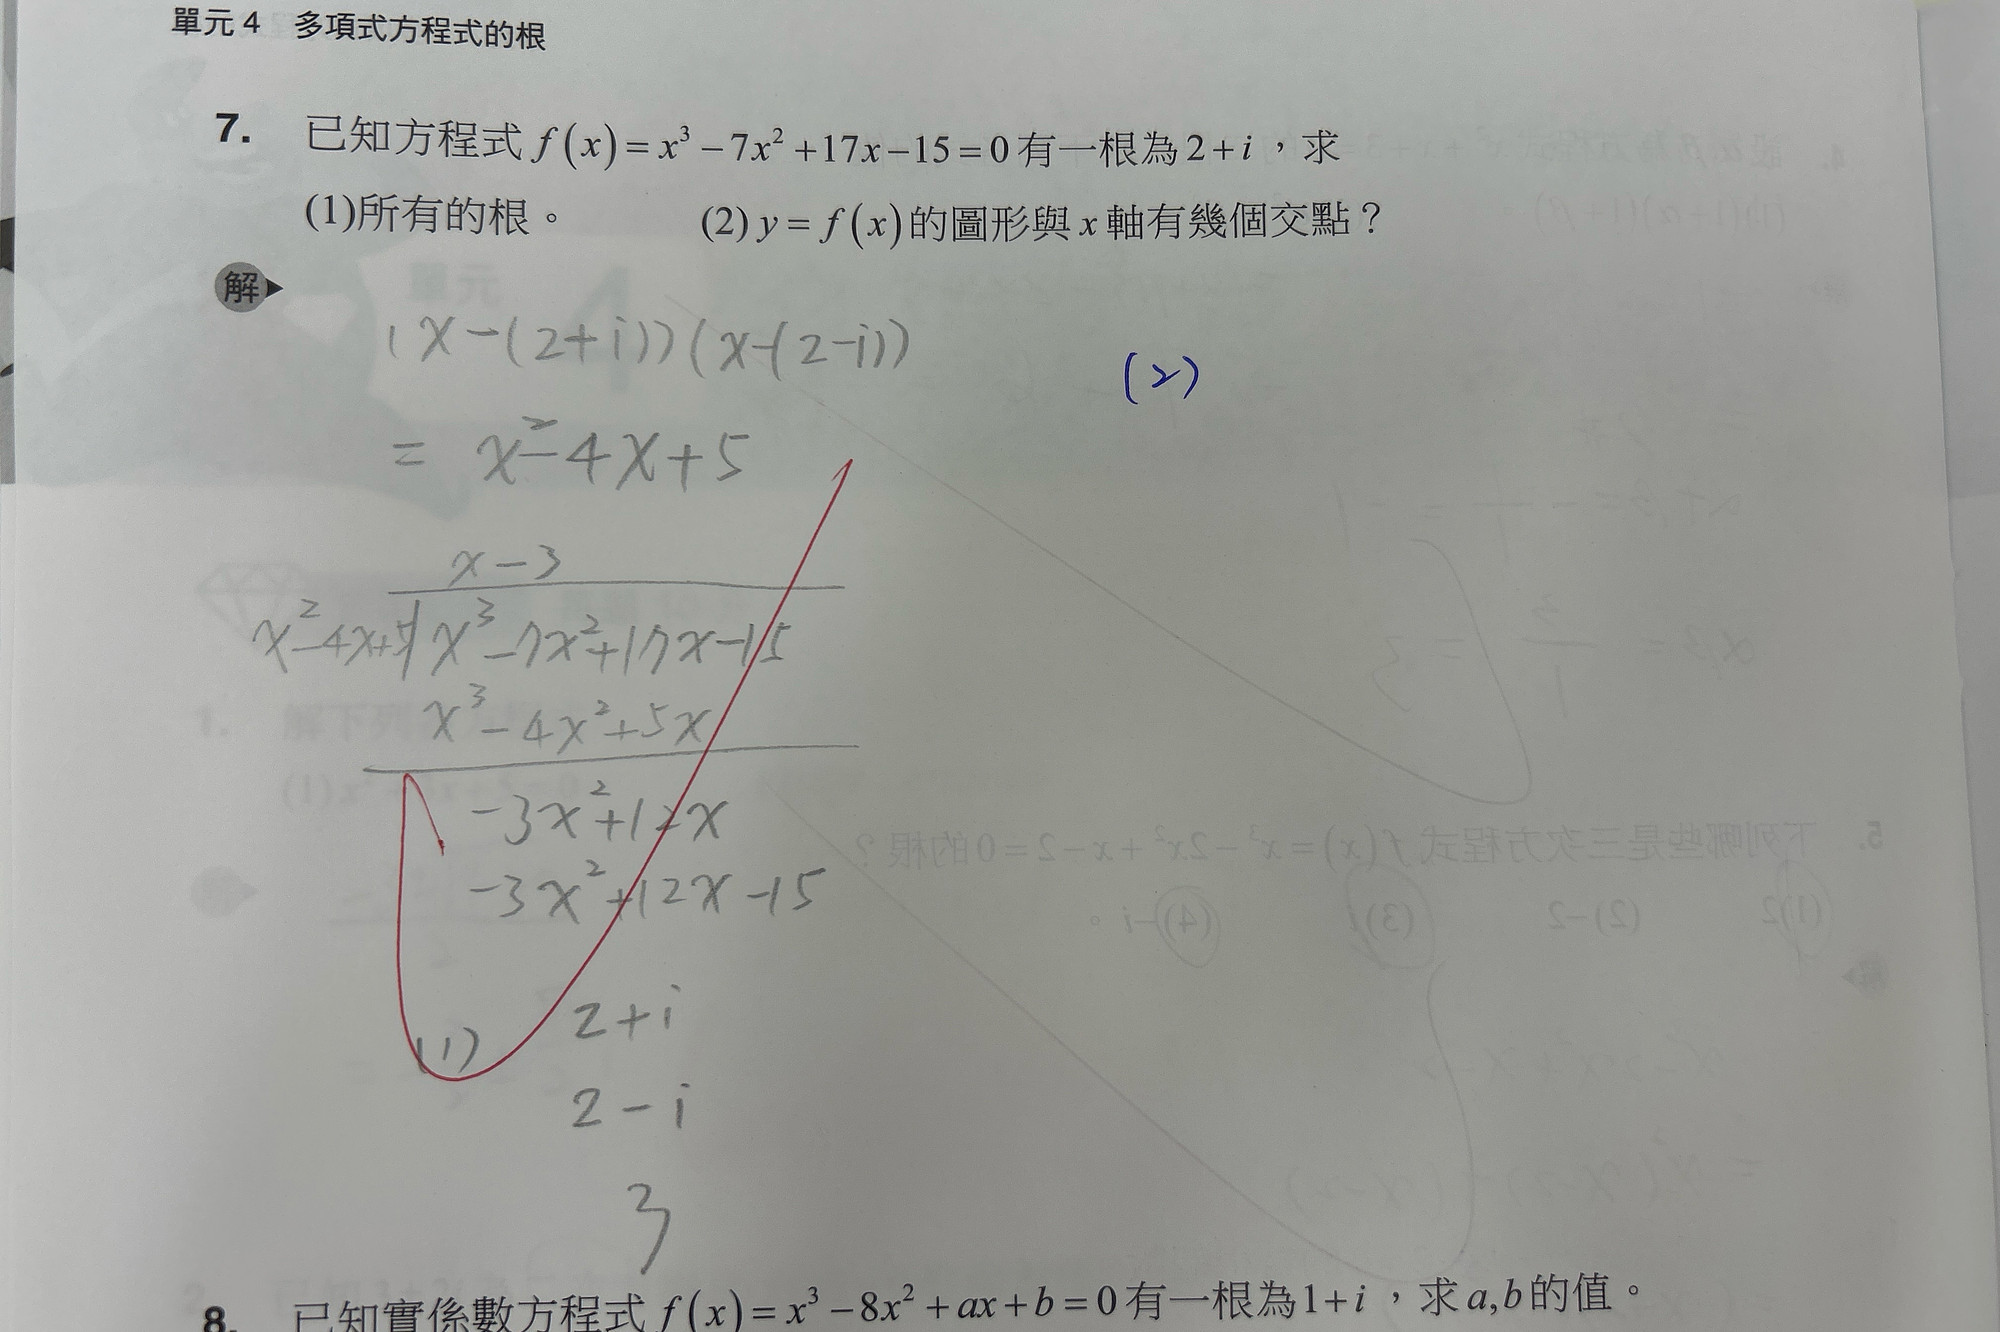 單元 4 多項式方程式的根
7. 已知方程式 f(x)=x³−7x²+17x−15=0 有一根為 2+i，求
(1)所有的根。 (2) y=f(x) 的圖形與 x 軸有幾個交點？
解
(x-(2+i))(x-(2-i))
(2)
= x²-4x+5
x-3
x²-4x+5 x³-7x²+17x-15
x³-4x²+5x
-3x²+12x
-3x²+12x-15
(1) 2+i
2-i
3
8. 已知實係數方程式 f(x)=x³−8x²+ax+b=0 有一根為 1+i，求 a,b 的值。